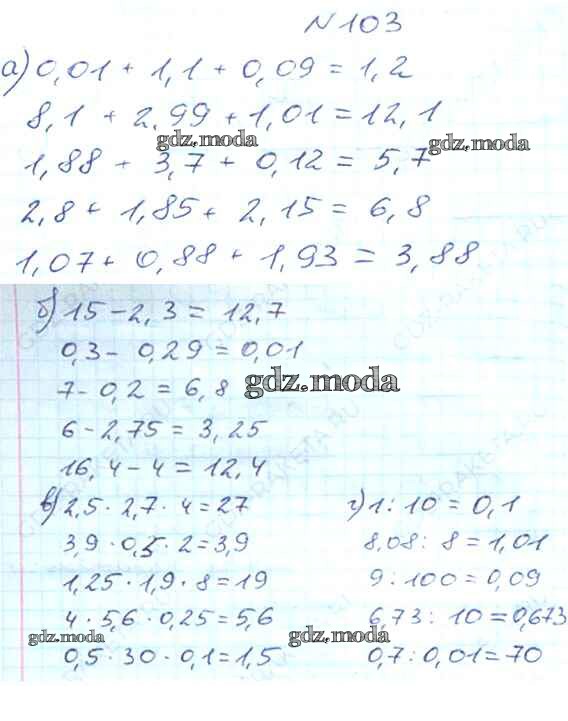 N103
а) 0,01 + 1,1 + 0,09 = 1,2
8,1 + 2,99 + 1,01 = 12,1
gdz.moda
gdz.moda
1,88 + 3,7 + 0,12 = 5,7
2,8 + 1,85 + 2,15 = 6,8
1,07 + 0,88 + 1,93 = 3,88
б) 15 - 2,3 = 12,7
0,3 - 0,29 = 0,01
7 - 0,2 = 6,8
gdz.moda
6 - 2,75 = 3,25
16,4 - 4 = 12,4
в) 2,5 · 2,7 · 4 = 27
3,9 · 0,5 · 2 = 3,9
1,25 · 1,9 · 8 = 19
4 · 5,6 · 0,25 = 5,6
gdz.moda
0,5 · 30 · 0,1 = 1,5
г) 1 : 10 = 0,1
8,08 : 8 = 1,01
9 : 100 = 0,09
6,73 : 10 = 0,673
gdz.moda
0,7 : 0,01 = 70